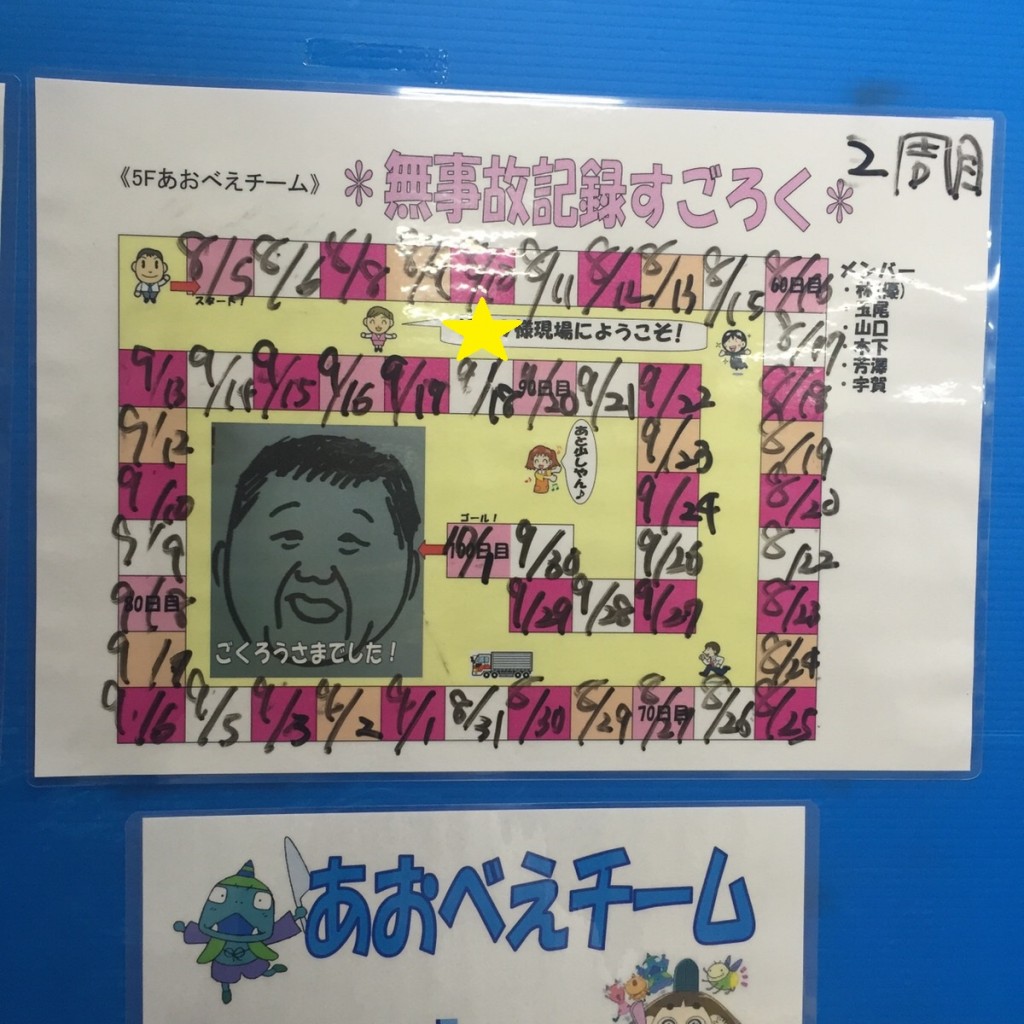 《5Fあおべえチーム》
＊無事故記録すごろく＊
2周目
スタート!
8/5 8/6 8/8 8/10 8/11 8/12 8/13 8/15 8/16
60日目
様現場にようこそ!
メンバー
・林(優)
・玉尾
・山口
・木下
・芳澤
・宇賀
8/17
9/13 9/14 9/15 9/16 9/17 9/18 9/20 9/21 9/22 8/18
90日目
9/12 9/23 8/19
あと少しやん♪
9/10 9/24 8/20
ゴール!
9/9 10/1 9/30 9/26 8/22
100日目
9/8 9/29 9/28 9/27 8/23
80日目
9/7 8/24
ごくろうさまでした!
9/6 9/5 9/3 9/2 9/1 8/31 8/30 8/29 8/27 8/26 8/25
70日目
あおべえチーム